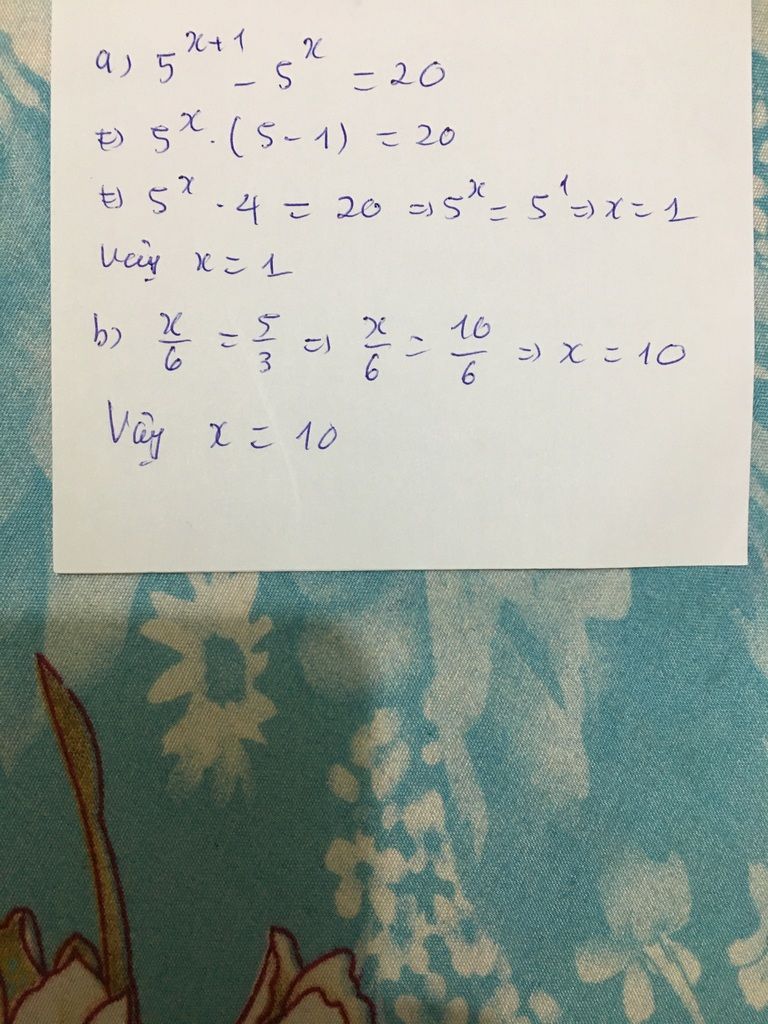 a) 5^{x+1} - 5^x = 20
⇔ 5^x . (5 - 1) = 20
⇔ 5^x . 4 = 20 ⇒ 5^x = 5^1 ⇒ x = 1
Vậy x = 1
b) \frac{x}{6} = \frac{5}{3} ⇒ \frac{x}{6} = \frac{10}{6} ⇒ x = 10
Vậy x = 10